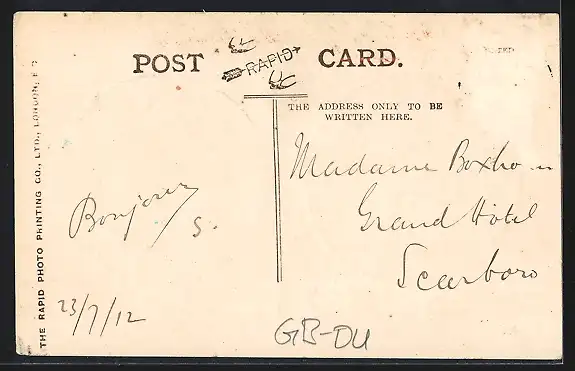 POST RAPID CARD.
THE ADDRESS ONLY TO BE
WRITTEN HERE.
Madame
Grand Hotel
Scarboro
Bonjour
S.
23/7/12
GB-DU
THE RAPID PHOTO PRINTING CO., LTD., LONDON, E C